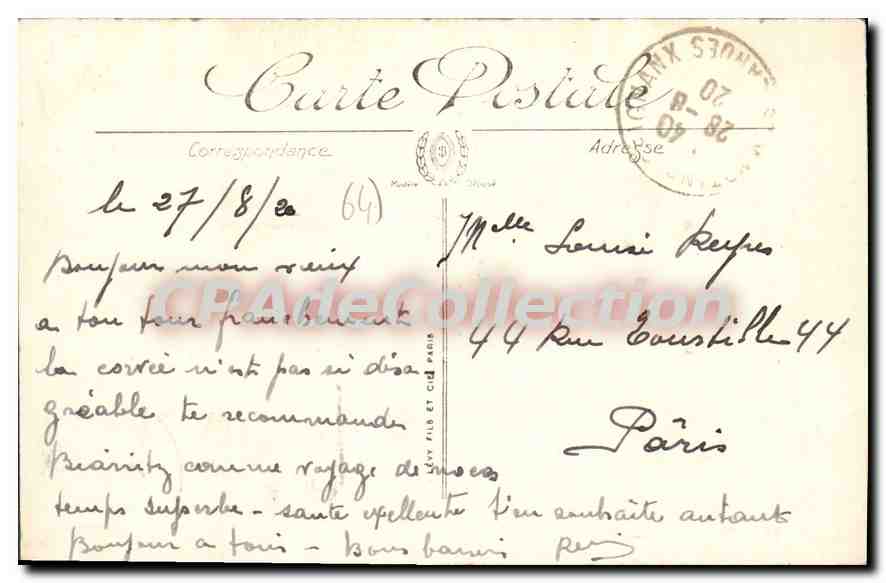 Carte Postale
Correspondance
Adresse
le 27/8/20 (64)
Bonjour mon vieux
a ton tour franchement
la corvée n'est pas si désa
gréable te recommandes
Biarritz comme voyage de noces
temps superbe - sante exellente t'en souhaite autant
Bonjour a tous - Bons baisers
LÉVY FILS ET CIE, PARIS
Melle Louise
44 Rue 44
Pâris
28 - 8
20
40
LANDES
CPAdeCollection